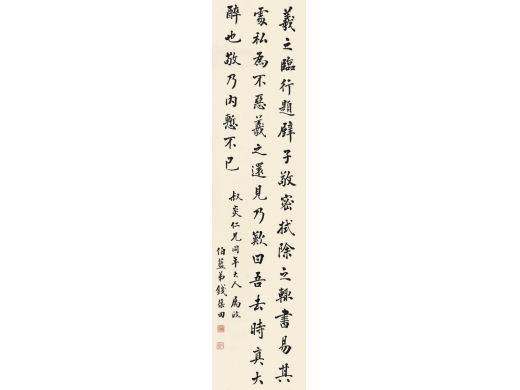 羲之臨行題壁子敬密拭除之輒書易其
處私爲不惡羲之還見乃歎曰吾去時真大
醉也敬乃內慙不已
叔炎仁兄同年大人屬政
伯 弟錢 田